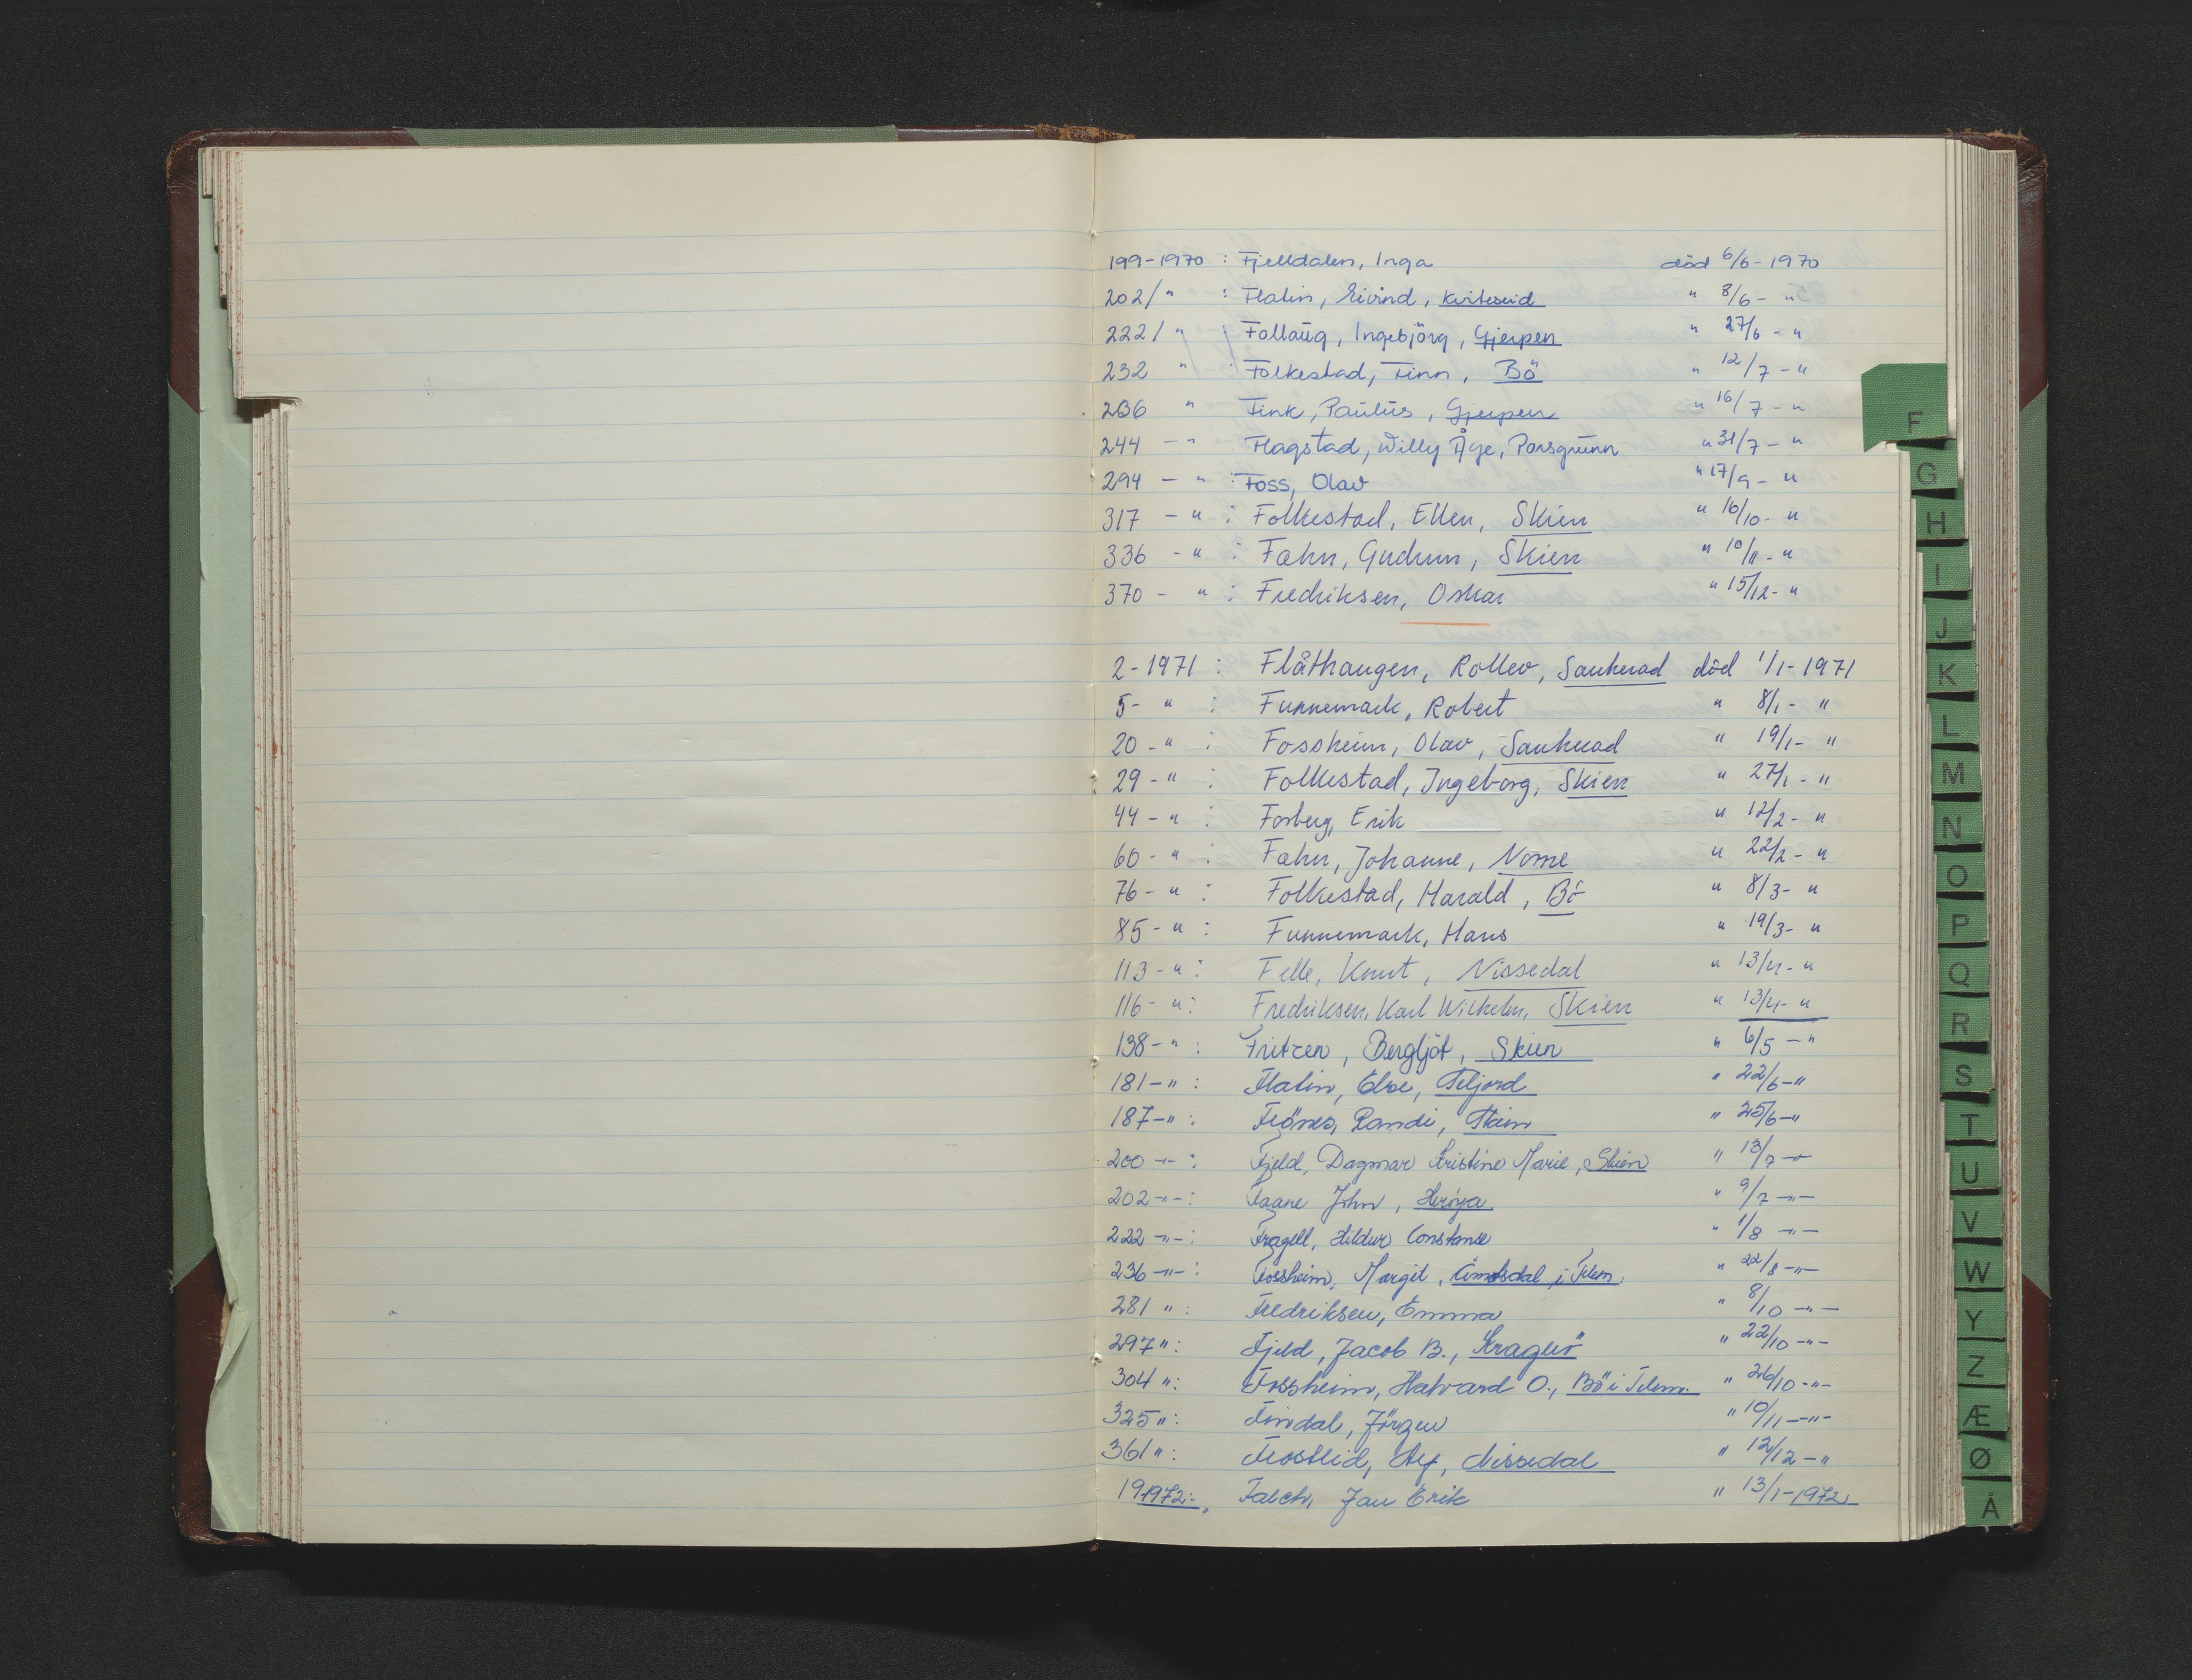 199-1970 : Fjelldalen, Inga død 6/6-1970
202/ " : Flatin, Eivind, Kviteseid " 8/6- "
222/ " : Follaug, Ingebjörg, Gjerpen " 27/6 - "
232 " : Folkestad, Finn, Bö " 12/7 - "
236 " Fink, Paulus, Gjerpen " 16/7 - "
244 - " Flagstad, Willy Åge, Porsgrunn " 31/7 - "
294 - " : Foss, Olav " 17/9 - "
317 - " : Folkestad, Ellen, Skien " 16/10- "
336 - " : Fahn, Gudrun, Skien " 10/11- "
370 - " : Fredriksen, Oskar " 15/12- "
2-1971 : Flåthaugen, Rollev, Sauherad død 1/1-1971
5- " : Funnemark, Robert " 8/1- "
20- " : Fossheim, Olav, Sauherad " 19/1- "
29- " : Folkestad, Ingeborg, Skien " 27/1- "
44- " : Forberg, Erik " 12/2- "
60- " : Fahn, Johanne, Nome " 22/2- "
76- " : Folkestad, Harald, Bö " 8/3- "
85- " : Funnemark, Hans " 19/3- "
113- " : Felle, Knut, Nissedal " 13/4- "
116- " : Fredriksen, Karl Wilhelm, Skien " 13/4- "
138- " : Fritzen, Bergljot, Skien " 6/5 - "
181- " : Flatin, Else, Seljord " 22/6- "
187- " : Frönes, Randi, Skien " 25/6- "
200 -"- : Fjeld, Dagmar Kristine Marie, Skien " 13/7 -"-
202 -"- : Faane John, Herøya " 9/7 -"-
222 -"- : Fragell, Hildur Constanse " 1/8 -"-
236 -"- : Fossheim, Margit, Åmotsdal i Telem. " 22/8 -"-
281 " : Fredriksen, Emma " 8/10 -"-
297 " : Fjeld, Jacob B., Kragerö " 22/10 -"-
304 " : Fossheim, Halvard O., Bö i Telem. " 26/10 -"-
325 " : Findal, Jörgen " 10/11 -"-
361 " : Frostlid, Nissedal " 12/12 - "
19 1972 :- Falch, Jan Erik " 13/1-1972
F
G
H
I
J
K
L
M
N
O
P
Q
R
S
T
U
V
W
Y
Z
Æ
Ø
Å